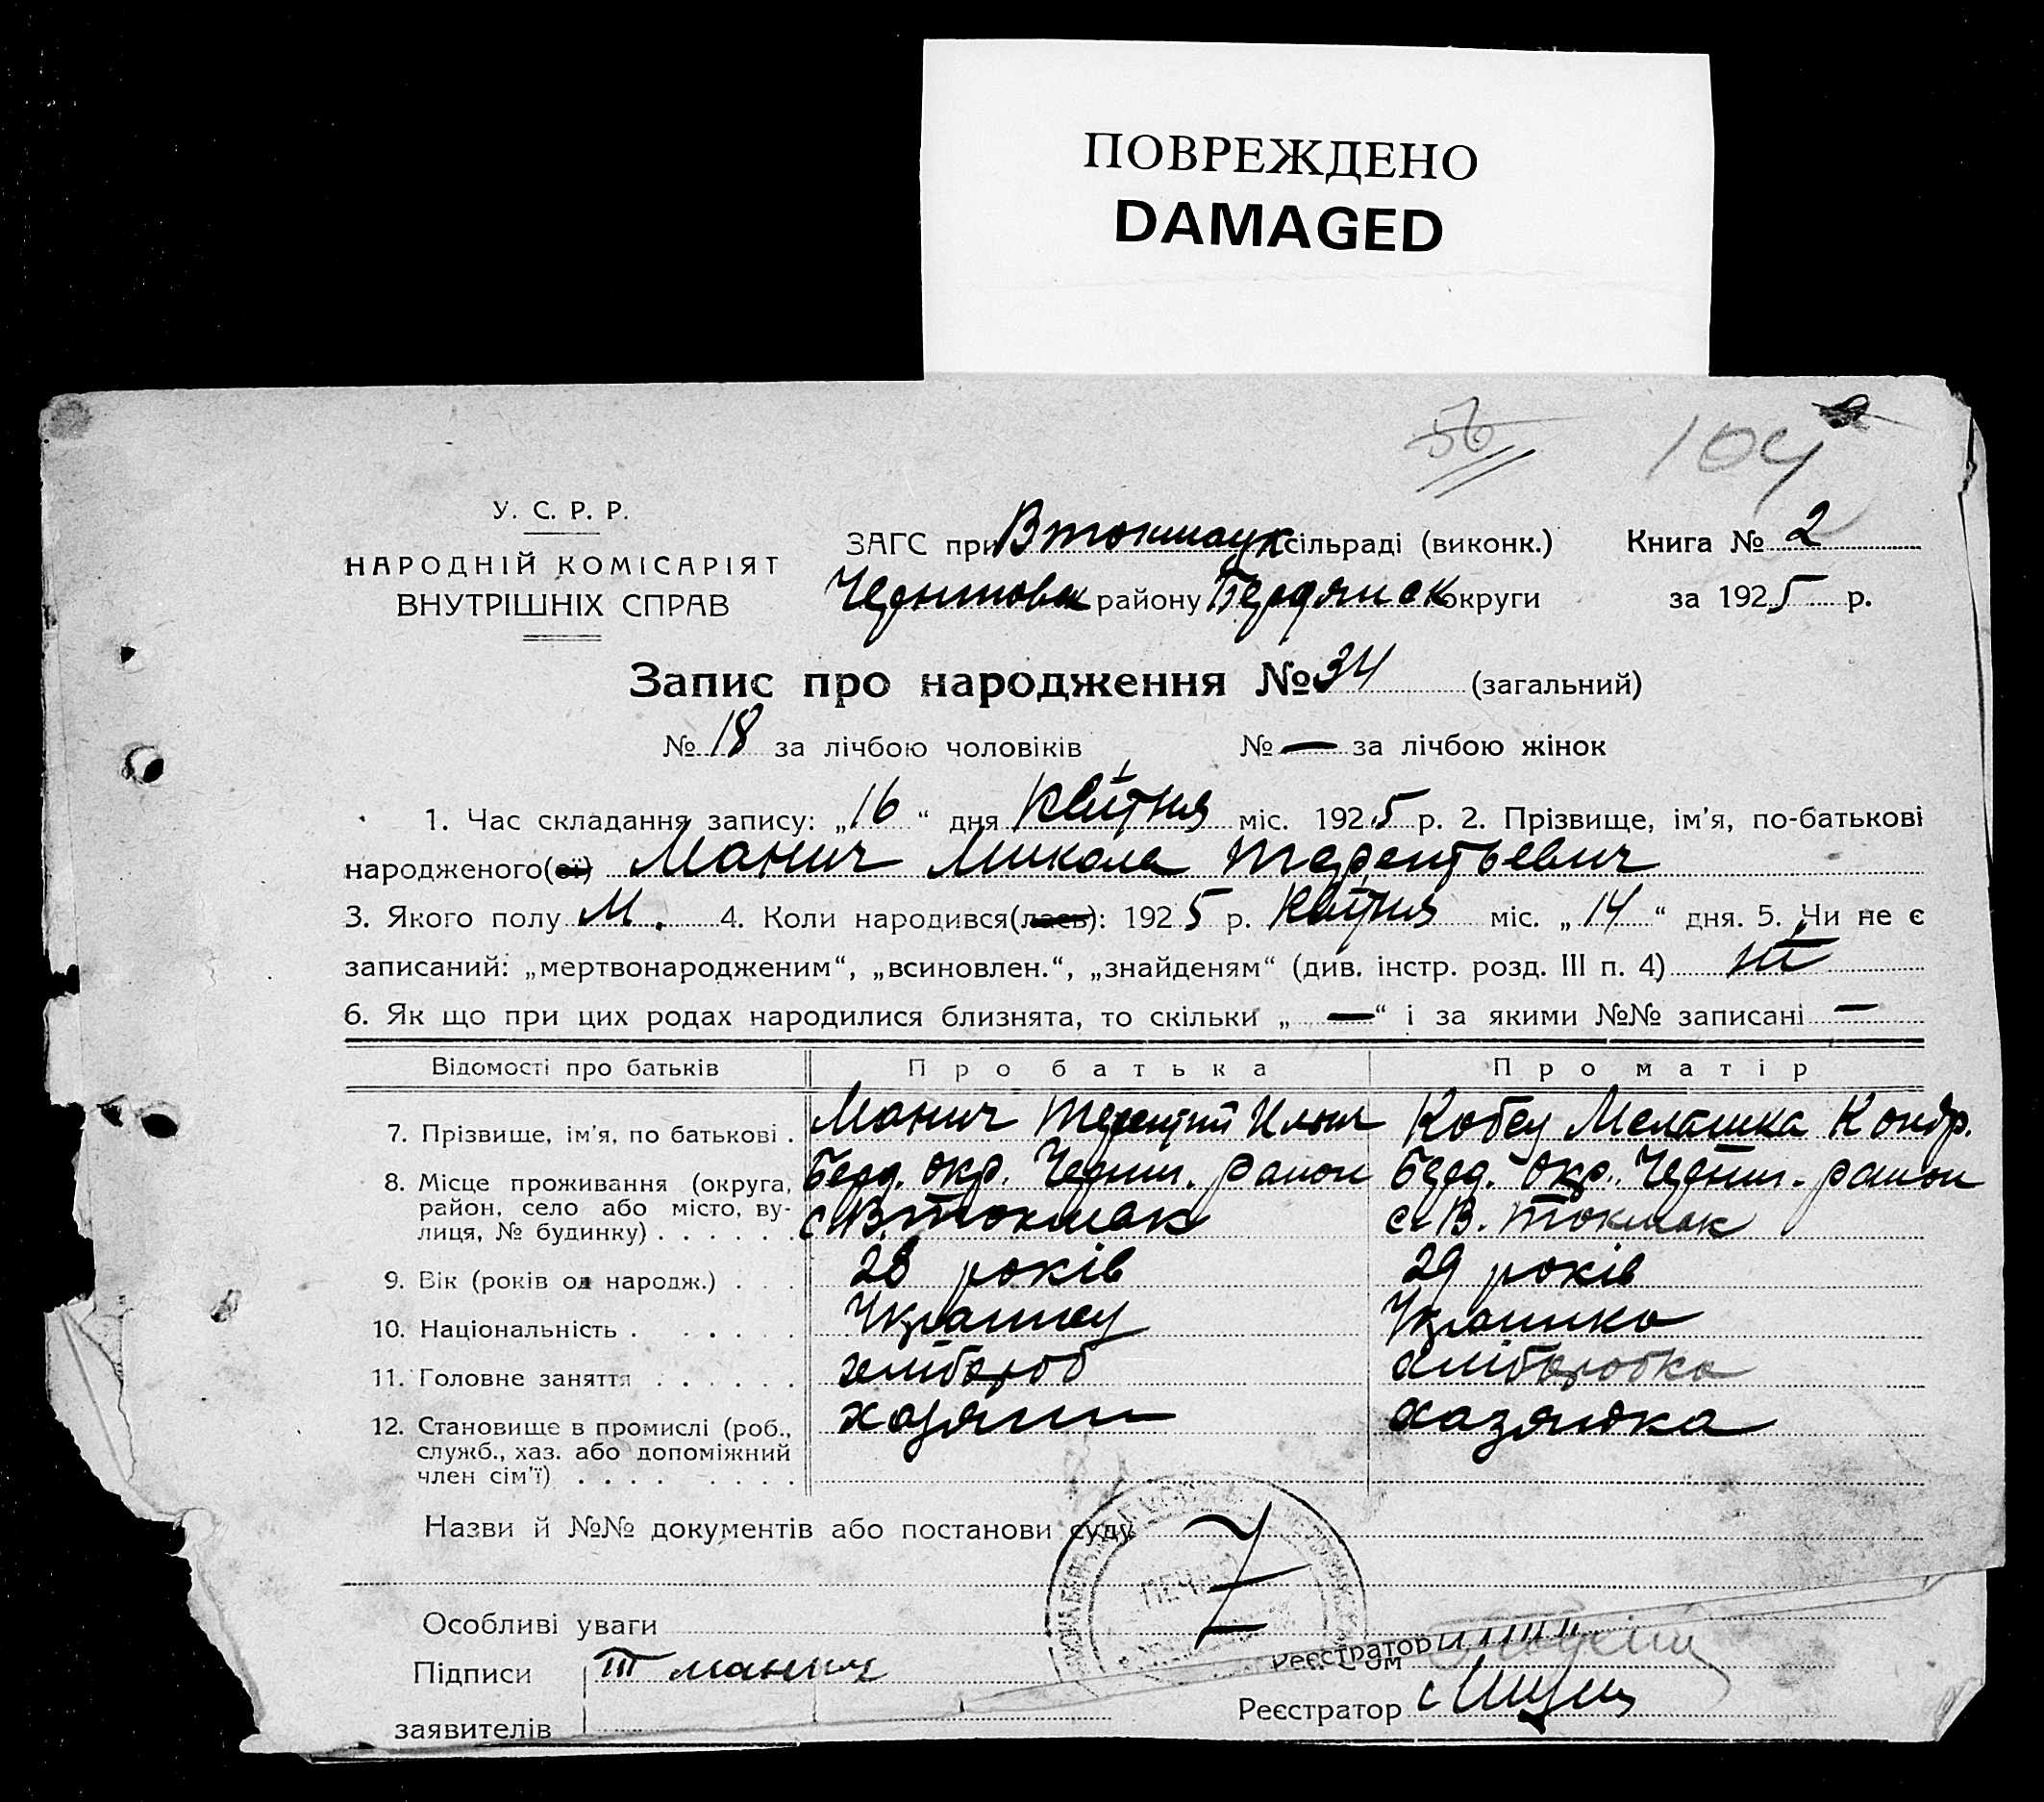 ПОВРЕЖДЕНО
DAMAGED
56 104
У. С. Р. Р.
НАРОДНІЙ КОМІСАРІЯТ
ВНУТРІШНІХ СПРАВ
ЗАГС при Втокмацк сільраді (виконк.) Книга № 2
району Бердянск округи за 1925 р.
Запис про народження № 34 (загальний)
№ 18 за лічбою чоловіків № — за лічбою жінок
1. Час складання запису: „16“ дня Квітня міс. 1925 р. 2. Прізвище, ім'я, по-батькові
народженого(ої) Манич Микола Терентьевич
3. Якого полу М. 4. Коли народився(лась): 1925 р. Квітня міс. „14“ дня. 5. Чи не є
записаний: „мертвонародженим“, „всиновлен.“, „знайденям“ (див. інстр. розд. III п. 4) ні
6. Як що при цих родах народилися близнята, то скільки „—“ і за якими №№ записані —
Відомості про батьків Про батька Про матір
7. Прізвище, ім'я, по батькові . Манич Терентій Ильич Кобец Мелашка Кондр.
8. Місце проживання (округа, Берд. окр. Черниг. район Берд. окр. Черниг. район
район, село або місто, ву-
лиця, № будинку) . . . . . . с В. Токмак с. В. Токмак
9. Вік (років од народж.) . . . 28 років 29 років
10. Національність . . . . . . Украинец Украинка
11. Головне заняття . . . . . . хлібороб хліборобка
12. Становище в промислі (роб., хозяин хазяйка
служб., хаз. або допоміжний
член сім'ї) . . . . . . . .
Назви й №№ документів або постанови суду
Особливі уваги
Реєстратор
Підписи Т Манич
Реєстратор
заявителів